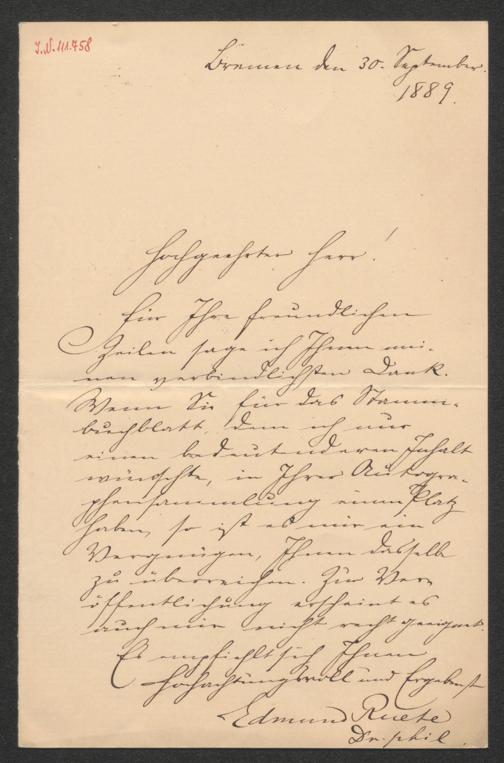 I.N. 111.758
Bremen den 30. September.
1889.
Hochgeehrter Herr!
Für Ihre freundlichen
Zeilen sage ich Ihnen mei-
nen verbindlichsten Dank.
Wenn Sie für das Stamm-
buchblatt, dem ich nur
einen bedeutenderen Inhalt
wünschte, in Ihrer Autogra-
phensammlung einen Platz
haben, so ist es mir ein
Vergnügen, Ihnen dasselbe
zu überreichen. Zur Ver-
öffentlichung erscheint es
auch mir nicht recht geeignet.
Es empfiehlt sich Ihnen
Hochachtungsvoll und Ergebenst
Edmund Ruete
Dr. phil.